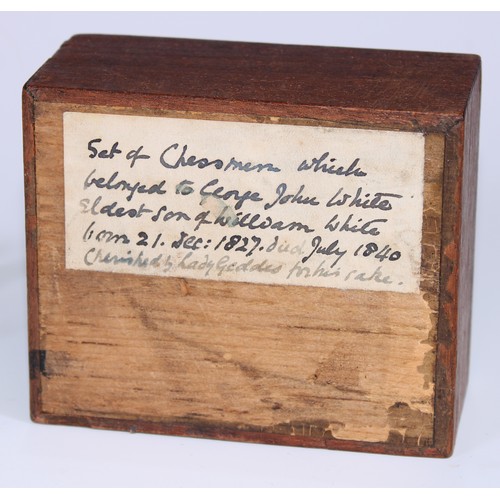 Set of Chessmen which
belonged to George John White
Eldest son of William White
born 21. Dec: 1827. died July 1840
Cherished by Lady Geddes for his sake.